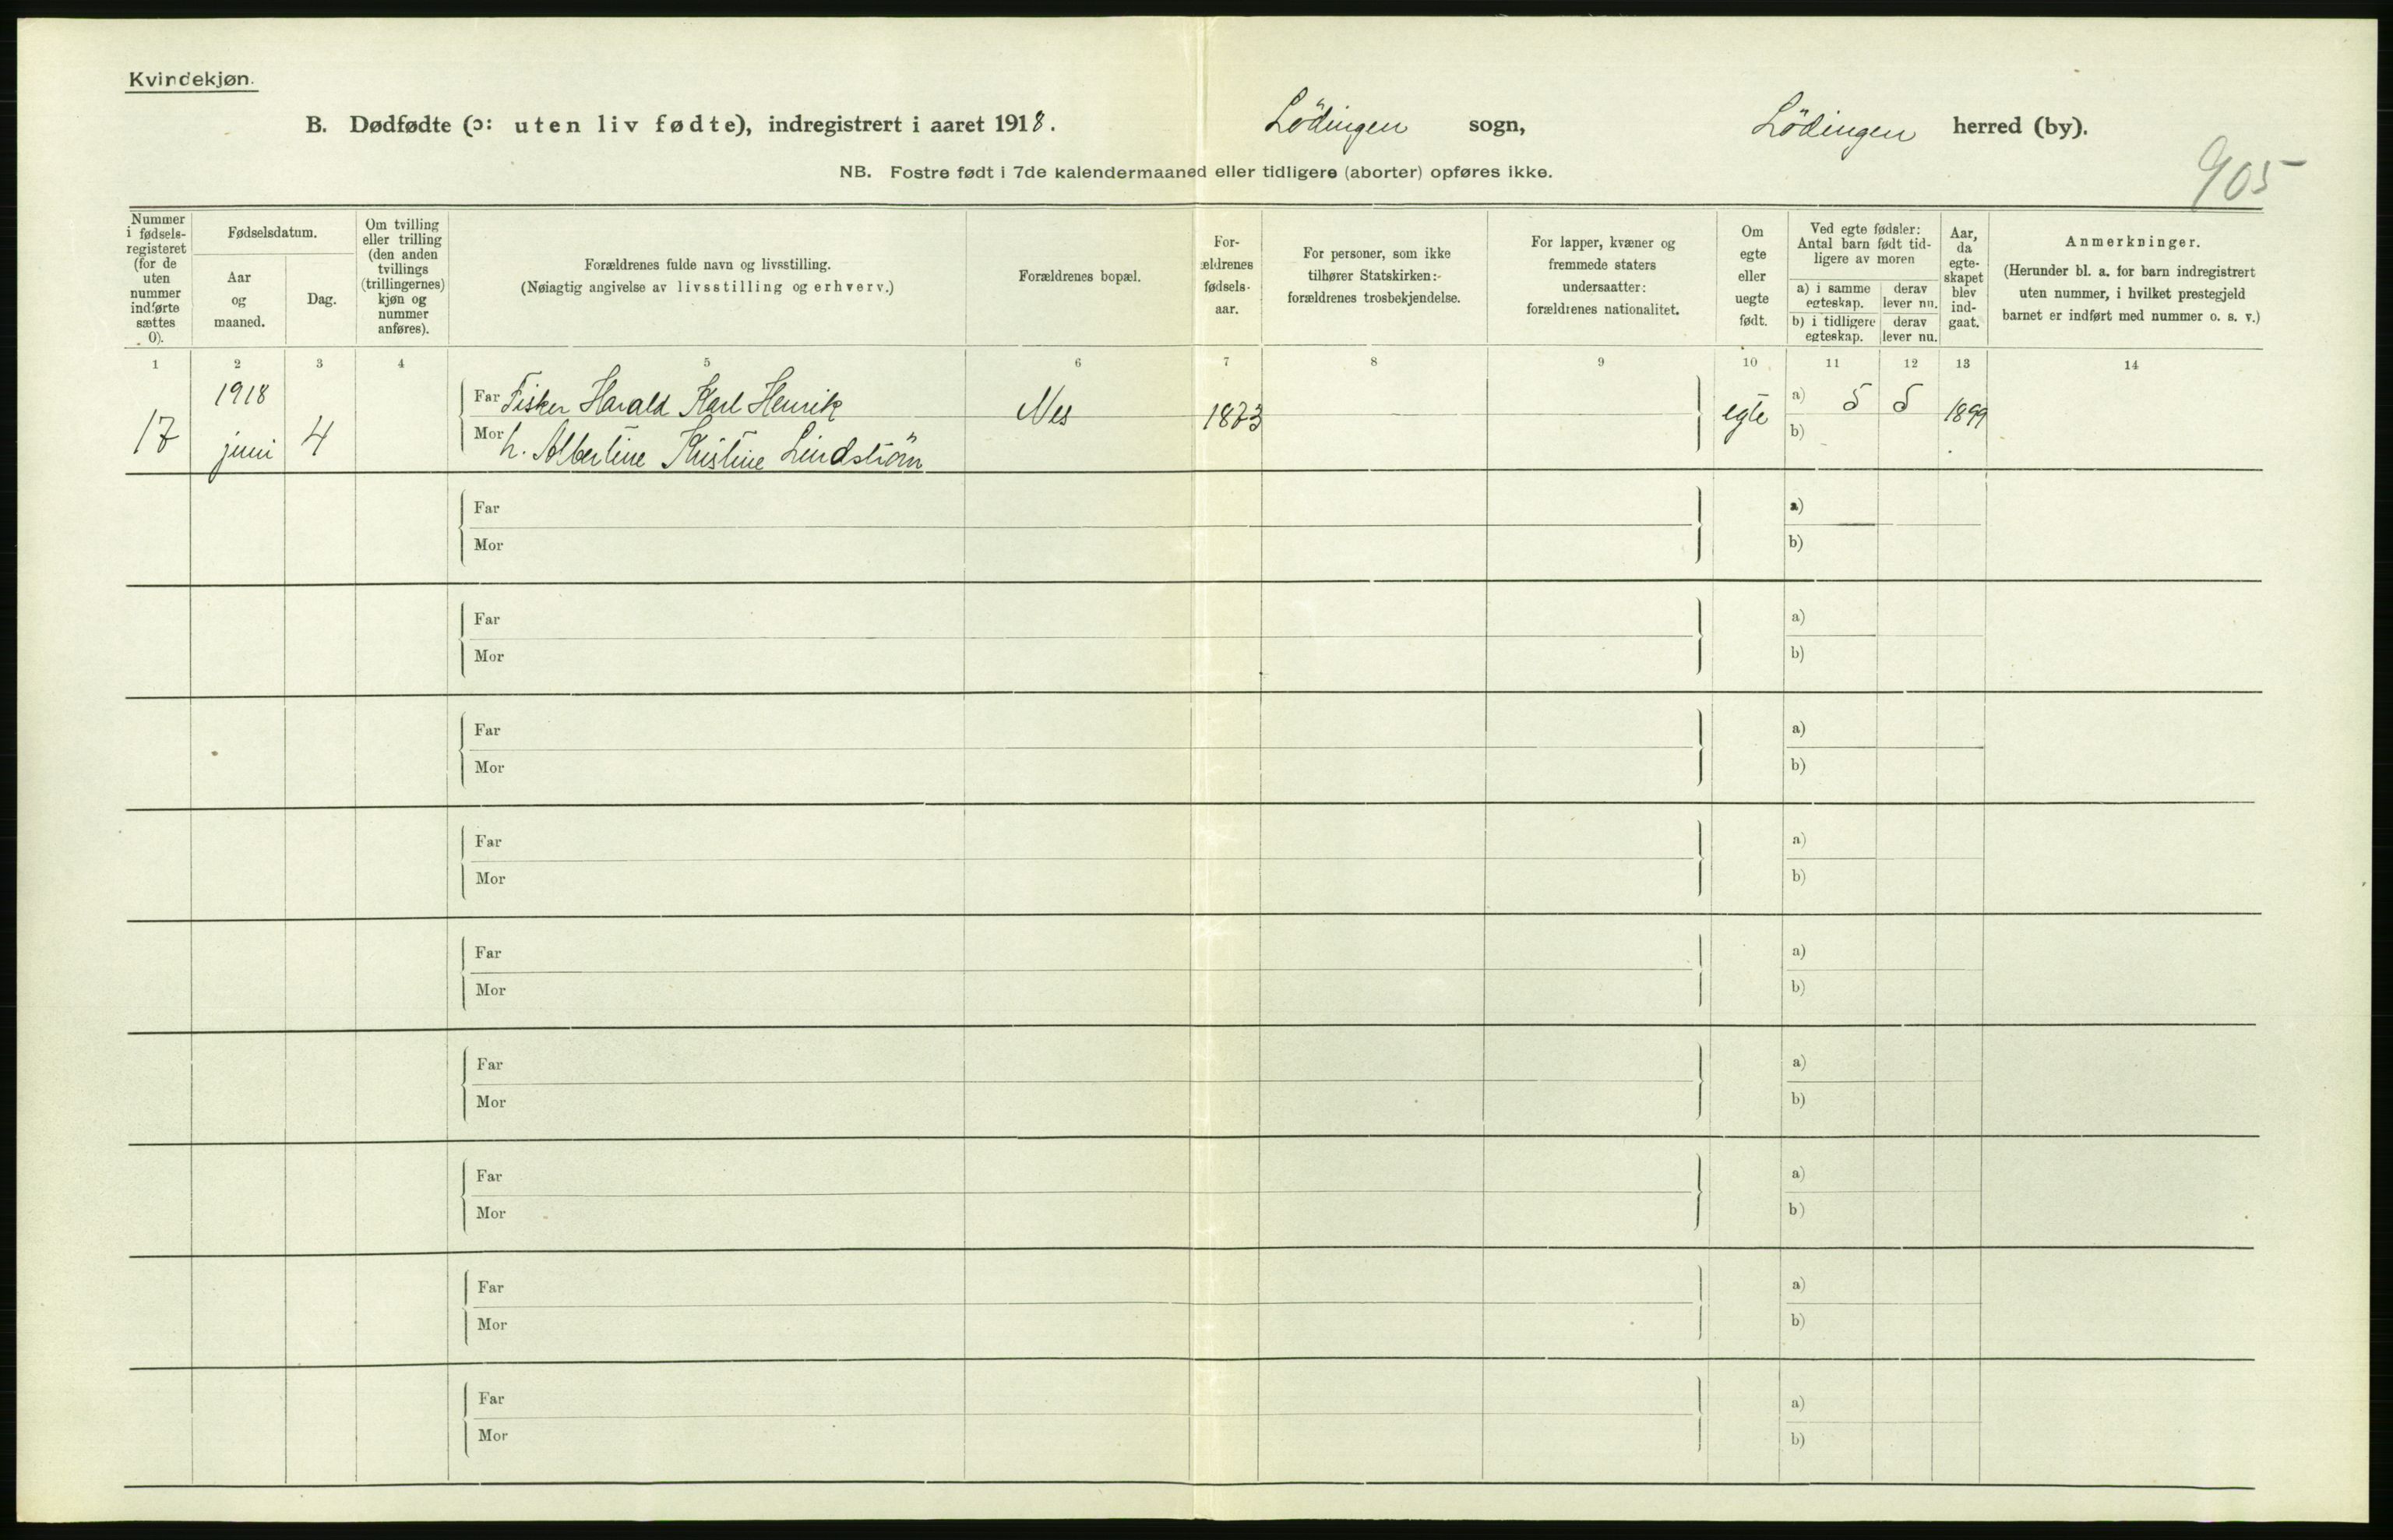 Kvindekjøn.
B. Dødfødte (ɔ: uten liv fødte), indregistrert i aaret 1918. Lödingen sogn, Lödingen herred (by).
NB. Fostre født i 7de kalendermaaned eller tidligere (aborter) opføres ikke.
905
Nummer
i fødsels-
registeret
(for de
uten
nummer
indførte
sættes
0).
Fødselsdatum.
Aar
og
maaned.
Dag.
Om tvilling
eller trilling
(den anden
tvillings
(trillingernes)
kjøn og
nummer
anføres).
Forældrenes fulde navn og livsstilling.
(Nøiagtig angivelse av livsstilling og erhverv.)
Forældrenes bopæl.
For-
ældrenes
fødsels-
aar.
For personer, som ikke
tilhører Statskirken:
forældrenes trosbekjendelse.
For lapper, kvæner og
fremmede staters
undersaatter:
forældrenes nationalitet.
Om
egte
eller
uegte
født.
Ved egte fødsler:
Antal barn født tid-
ligere av moren
a) i samme
egteskap.
derav
lever nu.
b) i tidligere
egteskap.
derav
lever nu.
Aar,
da
egte-
skapet
blev
ind-
gaat.
Anmerkninger.
(Herunder bl. a. for barn indregistrert
uten nummer, i hvilket prestegjeld
barnet er indført med nummer o. s. v.)
1 2 3 4 5 6 7 8 9 10 11 12 13 14
17 1918 juni 4
Far Fisker Harald Karl Henrik
Mor h. Albertine Kristine Lindström
Nes 1873 egte a) 5 5 1899
b)
Far a)
Mor b)
Far a)
Mor b)
Far a)
Mor b)
Far a)
Mor b)
Far a)
Mor b)
Far a)
Mor b)
Far a)
Mor b)
Far a)
Mor b)
Far a)
Mor b)